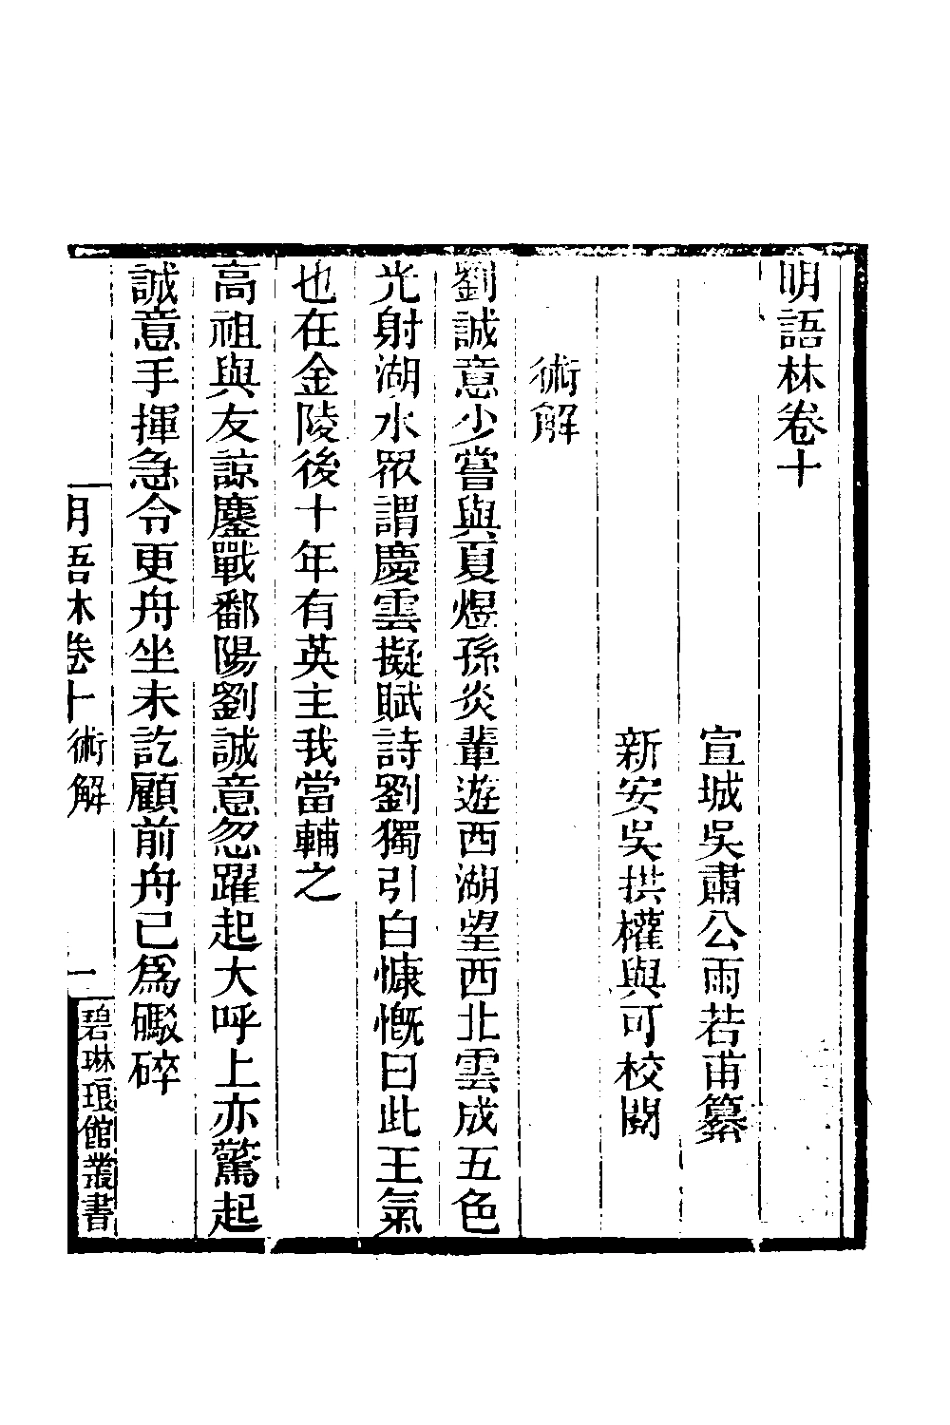 明語林卷十
宣城吳肅公雨若甫纂
新安吳拱權與可校閱
術解
劉誠意少嘗與夏煜孫炎輩遊西湖望西北雲成五色
光射湖水眾謂慶雲擬賦詩劉獨引白慷慨曰此王氣
也在金陵後十年有英主我當輔之
高祖與友諒鏖戰鄱陽劉誠意忽躍起大呼上亦驚起
誠意手揮急令更舟坐未訖顧前舟已為礮碎
明語林卷十 術解 一 碧琳琅館叢書